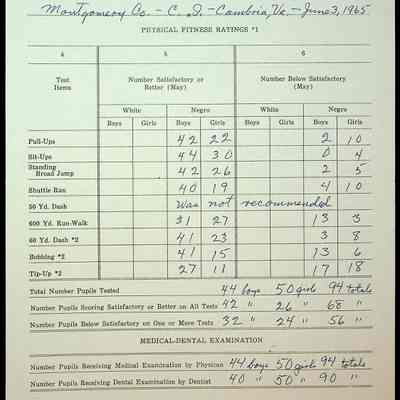 Montgomery Co. - C. I. - Cambria, Va. - June 3, 1965
PHYSICAL FITNESS RATINGS *1
4 5 6
Test Items Number Satisfactory or Better (May) Number Below Satisfactory (May)
White Negro White Negro
Boys Girls Boys Girls Boys Girls Boys Girls
Pull-Ups 42 22 2 10
Sit-Ups 44 30 0 4
Standing Broad Jump 42 26 2 5
Shuttle Run 40 19 4 10
50 Yd. Dash Was not recommended
600 Yd. Run-Walk 31 27 13 3
60 Yd. Dash *2 41 23 3 8
Bobbing *2 41 15 13 6
Tip-Up *2 27 11 17 18
Total Number Pupils Tested 44 boys 50 girls 94 totals
Number Pupils Scoring Satisfactory or Better on All Tests 42 " 26 " 68 "
Number Pupils Below Satisfactory on One or More Tests 32 " 24 " 56 "
MEDICAL-DENTAL EXAMINATION
Number Pupils Receiving Medical Examination by Physician 44 boys 50 girls 94 totals
Number Pupils Receiving Dental Examination by Dentist 40 " 50 " 90 "